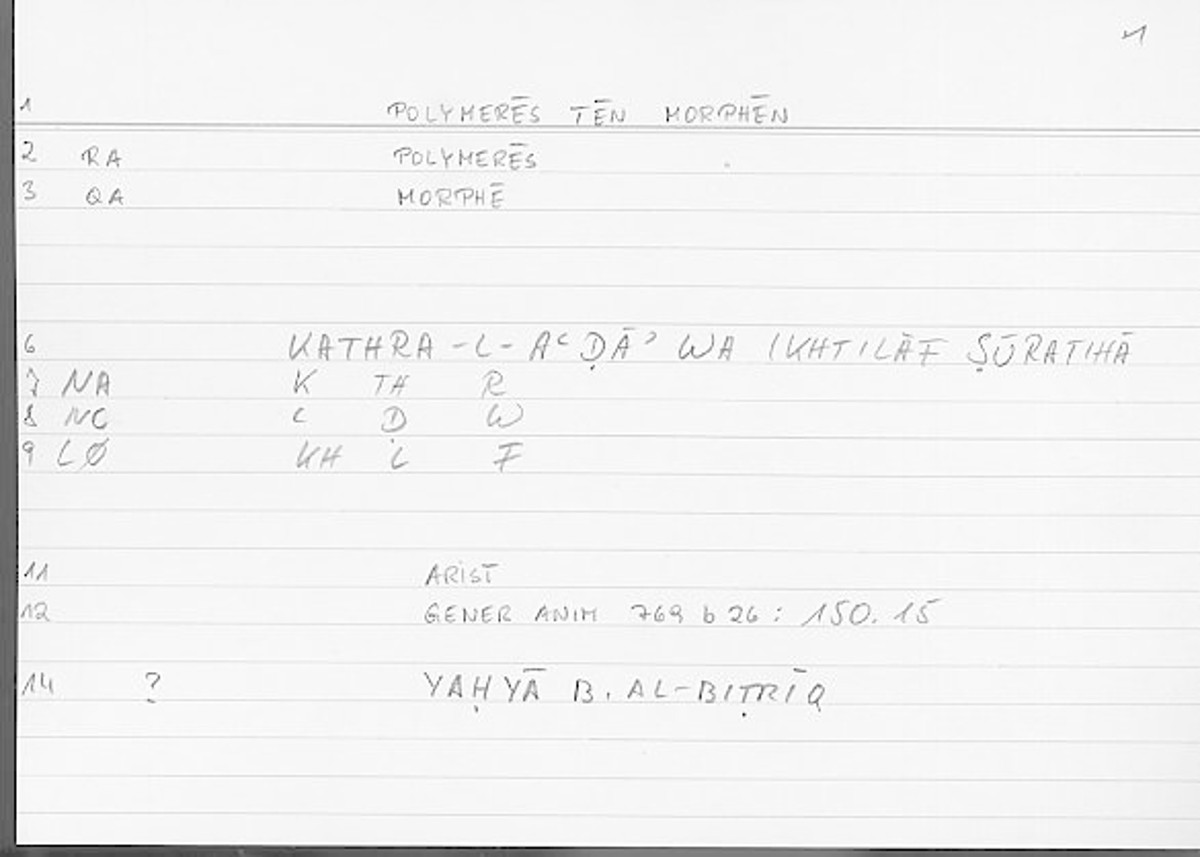 1
1 POLYMERĒS TĒN MORPHĒN
2 RA POLYMERĒS
3 QA MORPHĒ
6 KATHRA -L- AʿḌĀʾ WA IKHTILĀF ṢŪRATIHĀ
7 NA K TH R
8 NC ʿ Ḍ W
9 LØ KH L F
11 ARIST
12 GENER ANIM 769 b 26 : 150. 15
14 ? YAḤYĀ B. AL-BIṬRĪQ